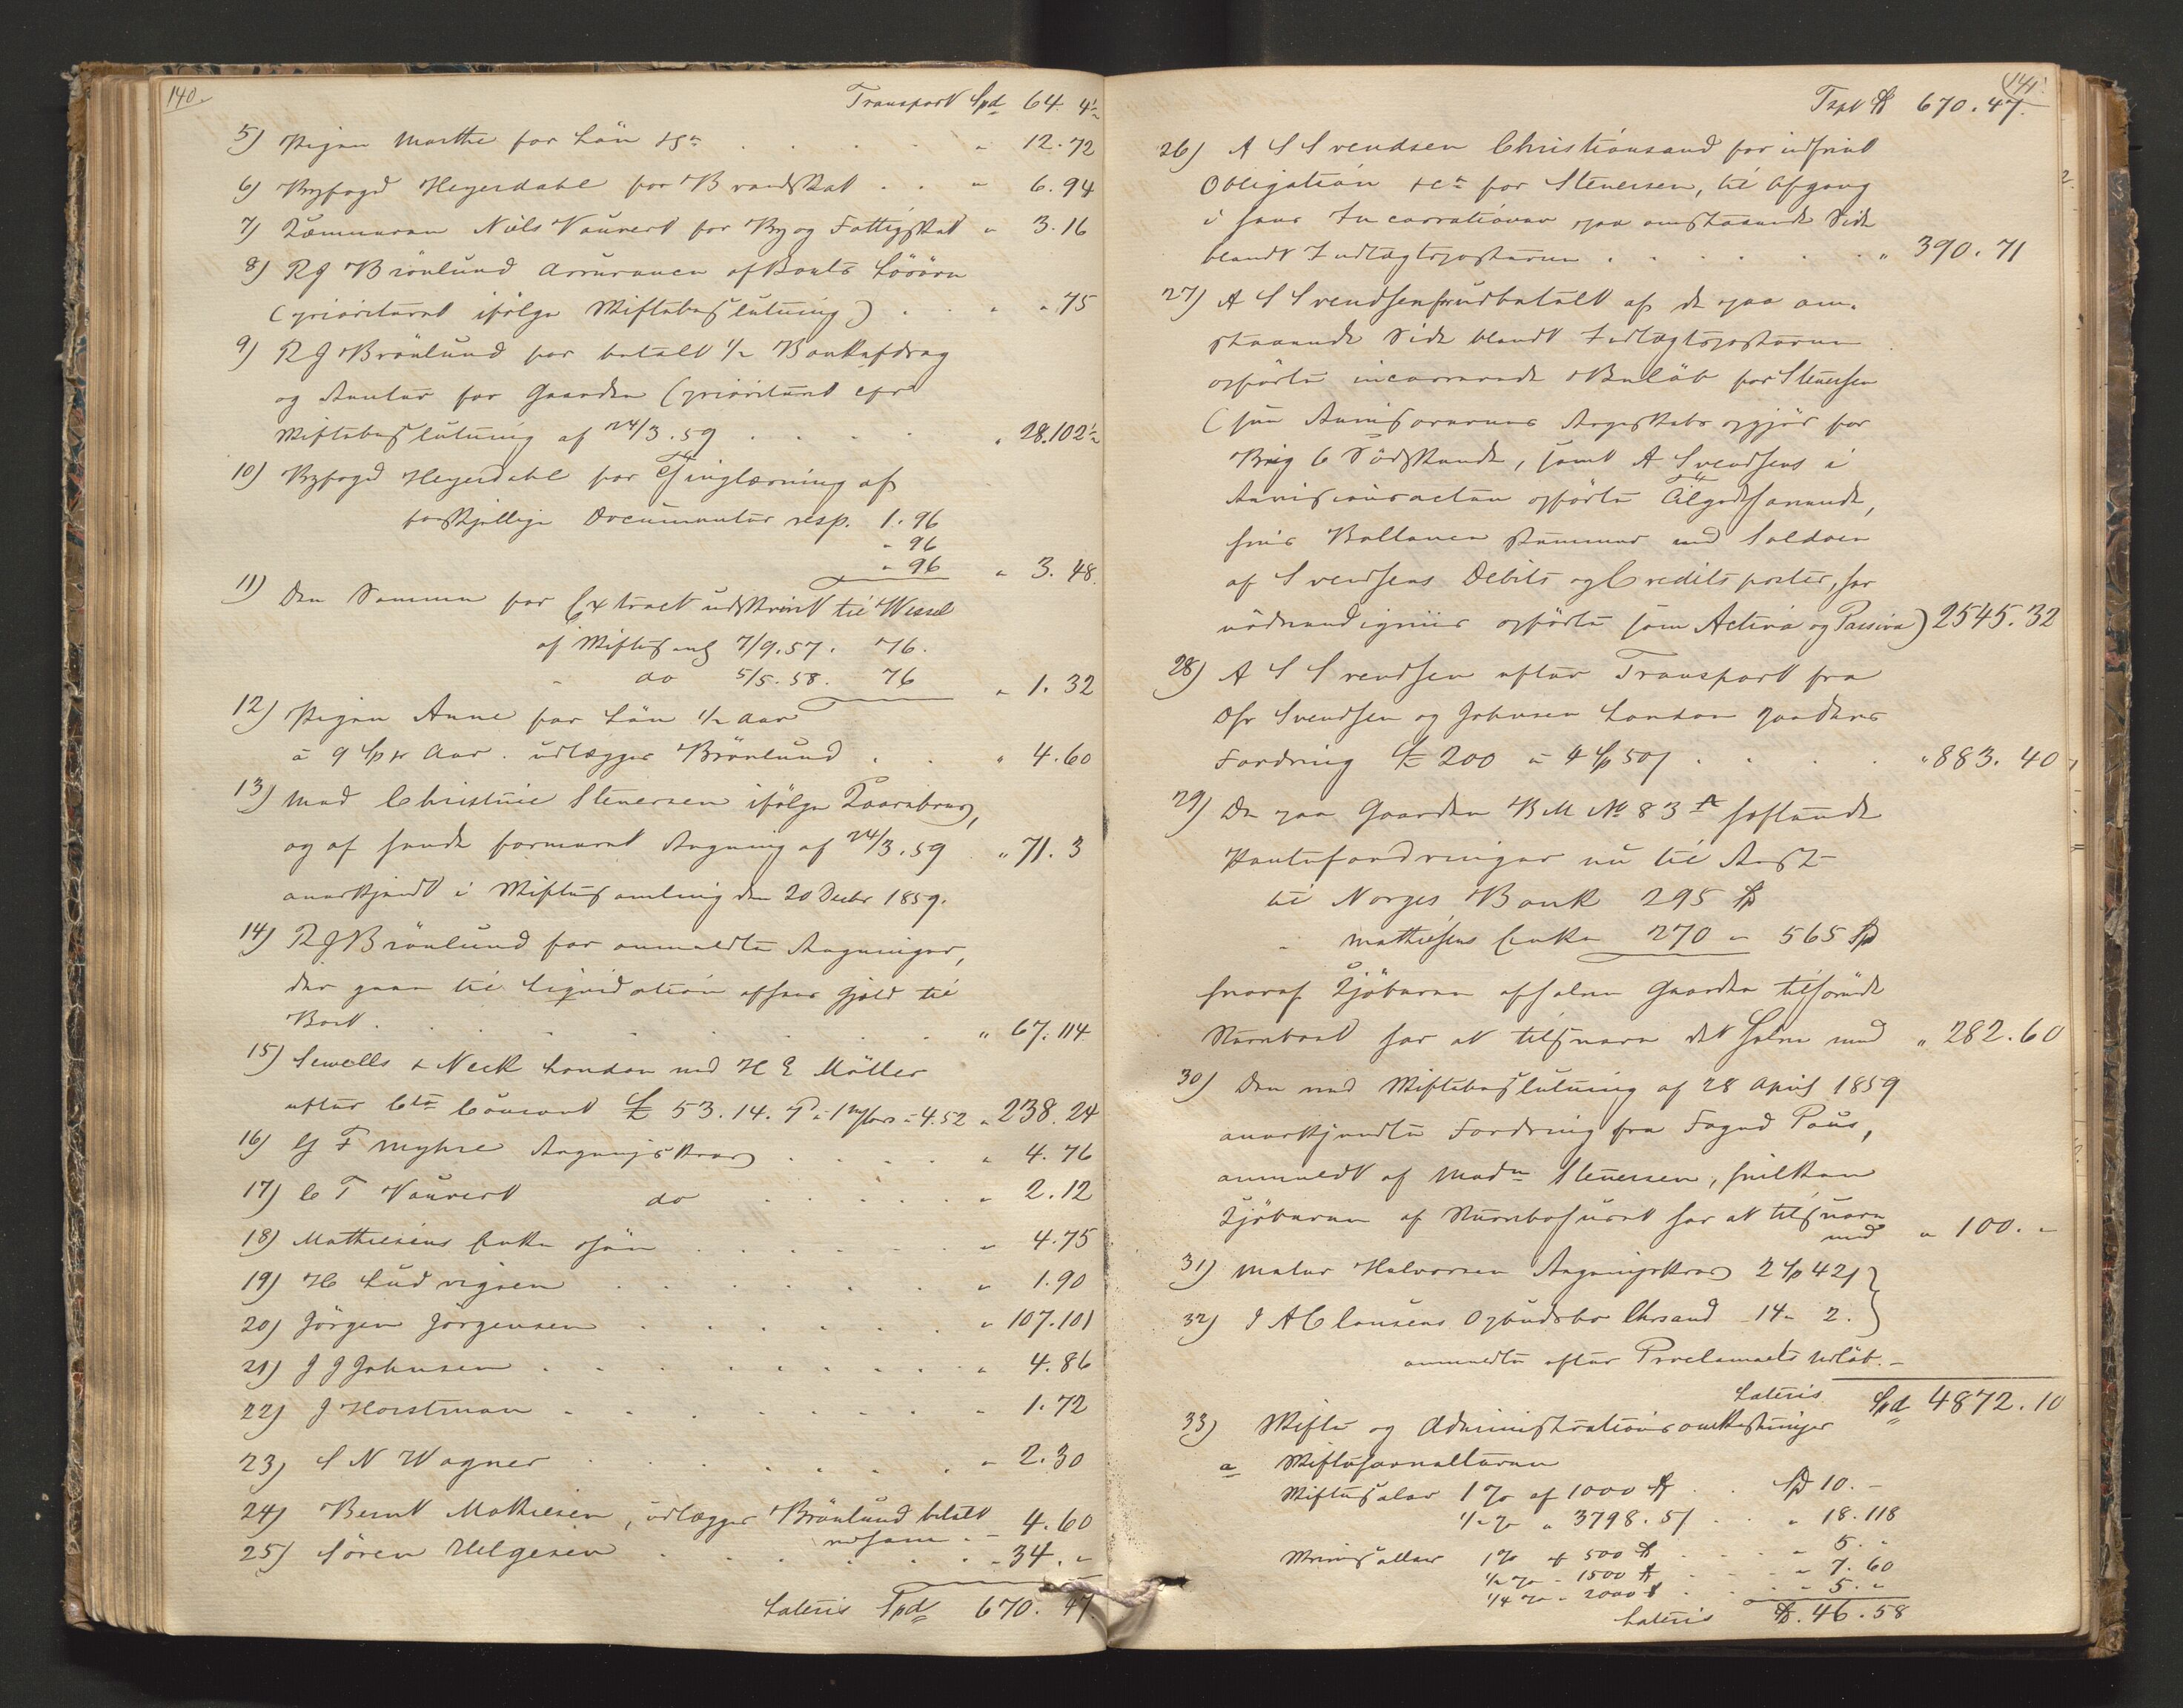 140.
Transport Spd 64. 4½
5) Pigen Marthe for Løn &c . . . " 12.72
6) Byfogd Heyerdahl for Brandskat . . " 6.94
7) Kæmneren Niels Vauvert for By og Fattigskat " 3.16
8) R J Brönlund Assurancen af Boets
(prioriteret ifølge Skiftebeslutning) . . . " 75
9) R J Brönlund for betalt ½ Bankafdrag
og Renter for Gaarden (prioriteret efr
Skiftebeslutning af 24/3.59 . . . . " 28.102½
10) Byfogd Heyerdahl for Thinglæsning af
forskjellige Documenter resp. 1.96
" 96
" 96 " 3.48.
11) Den Samme for Extract udskrevet til Wessel
af Skiftesaml 7/9.57. 76.
" do 5/5.58. 76 " 1.32
12) Pigen Anne for Løn ½ Aar
à 9 Sp pr Aar. udlægger Brönlund . . " 4.60
13) Mad Christine Stenersen ifølge Kaarebrev,
og af hende formeret Regning af 24/3.59 . " 71.3
anerkjendt i Skiftesamling den 20 Decbr 1859.
14) R J Brönlund for anmeldte Regninger,
der gaar til Liquidation af hans Gjæld til
Boet . . . . . . . " 67.114
15) Sewells & Neck London ved H E Möller
efter Cto Courant £ 53.14.7 à 4.52 " 238.24
16) G F Myhre Regningskrav . . . . . " 4.76
17) C T Vauvert do . . . . . " 2.12
18) Mathiesens Enke . . . . . . " 4.75
19) H Ludvigsen . . . . . . " 1.90
20) Jörgen Jörgensen . . . . . . " 107.101
21) J J Johnsen . . . . . . . " 4.86
22) J Horstman . . . . . . . " 1.72
23) S N Wagner . . . . . . . " 2.30
24) Bernt Mathiesen, udlægger Brönlund betalt
" 4.60
25) Sören Helgesen . . . . . . . " 34. "
Lateris Spd 670. 47.
141.
Tspt Spd 670.47.
26) A S Svendsen Christiansand for indfriet
Obligation &c for Stenersen, til Afgang
i hans Incassationer paa omstaaende Side
blandt Indtægtsposterne . . . . . . " 390.71
27) A S Svendsen for udbetalt af de paa om-
staaende Side blandt Indtægtsposterne
opførte incasserede Beløb for Stenersen
(see Revisorernes Regnskabs opgjør for
Brig C Sødskende, samt A Svendsens i
Revisionsacten opførte Tilgodehavende,
hvis Ballance stemmer med Saldoen
af Svendsens Debits og Credits poster, her
nødvendigviis opførte som Activa og Passiva) 2545.32
28) A S Svendsen efter Transport fra
Dhr Svendsen og Johnsen London paa deres
Fordring £ 200 à 4 Sp 50 s . . . . " 883.40
29) De paa Gaarden B M No 83 a heftende
Pantefordringer nu til Rest
til Norges Bank 295 Spd
" Mathiesens Enke 270 " 565 Spd
hvoraf Kjøberen af halve Gaarden tilhørende
Stervboet har at tilsvare det halve med " 282.60
30) Den ved Skiftebeslutning af 28 April 1859
anerkjendte Fordring fra Foged Paus,
anmeldt af Madm Stenersen, hvilken
Kjøberen af Stervbohuset har at tilsvare
med " 100. "
31) Halvorsen Regningskrav 2 Sp 42 s
32) J A Clausens Opbudsbo Chrsand 14 " 2.
anmeldte efter Proclamaets Udløb. -
Lateris Spd 4872.10
33) Skifte og Administrationsomkostninger
a Skifteforvalteren
Skiftesalær 1 % af 1000 Spd . . Spd 10. -
½ % " 3798.51 . . " 18.118
1 % af 500 Spd . . . " 5. "
½ % " 1500 Spd . . . " 7.60
¼ % " 2000 Spd . . . " 5. "
Lateris Spd. 46.58